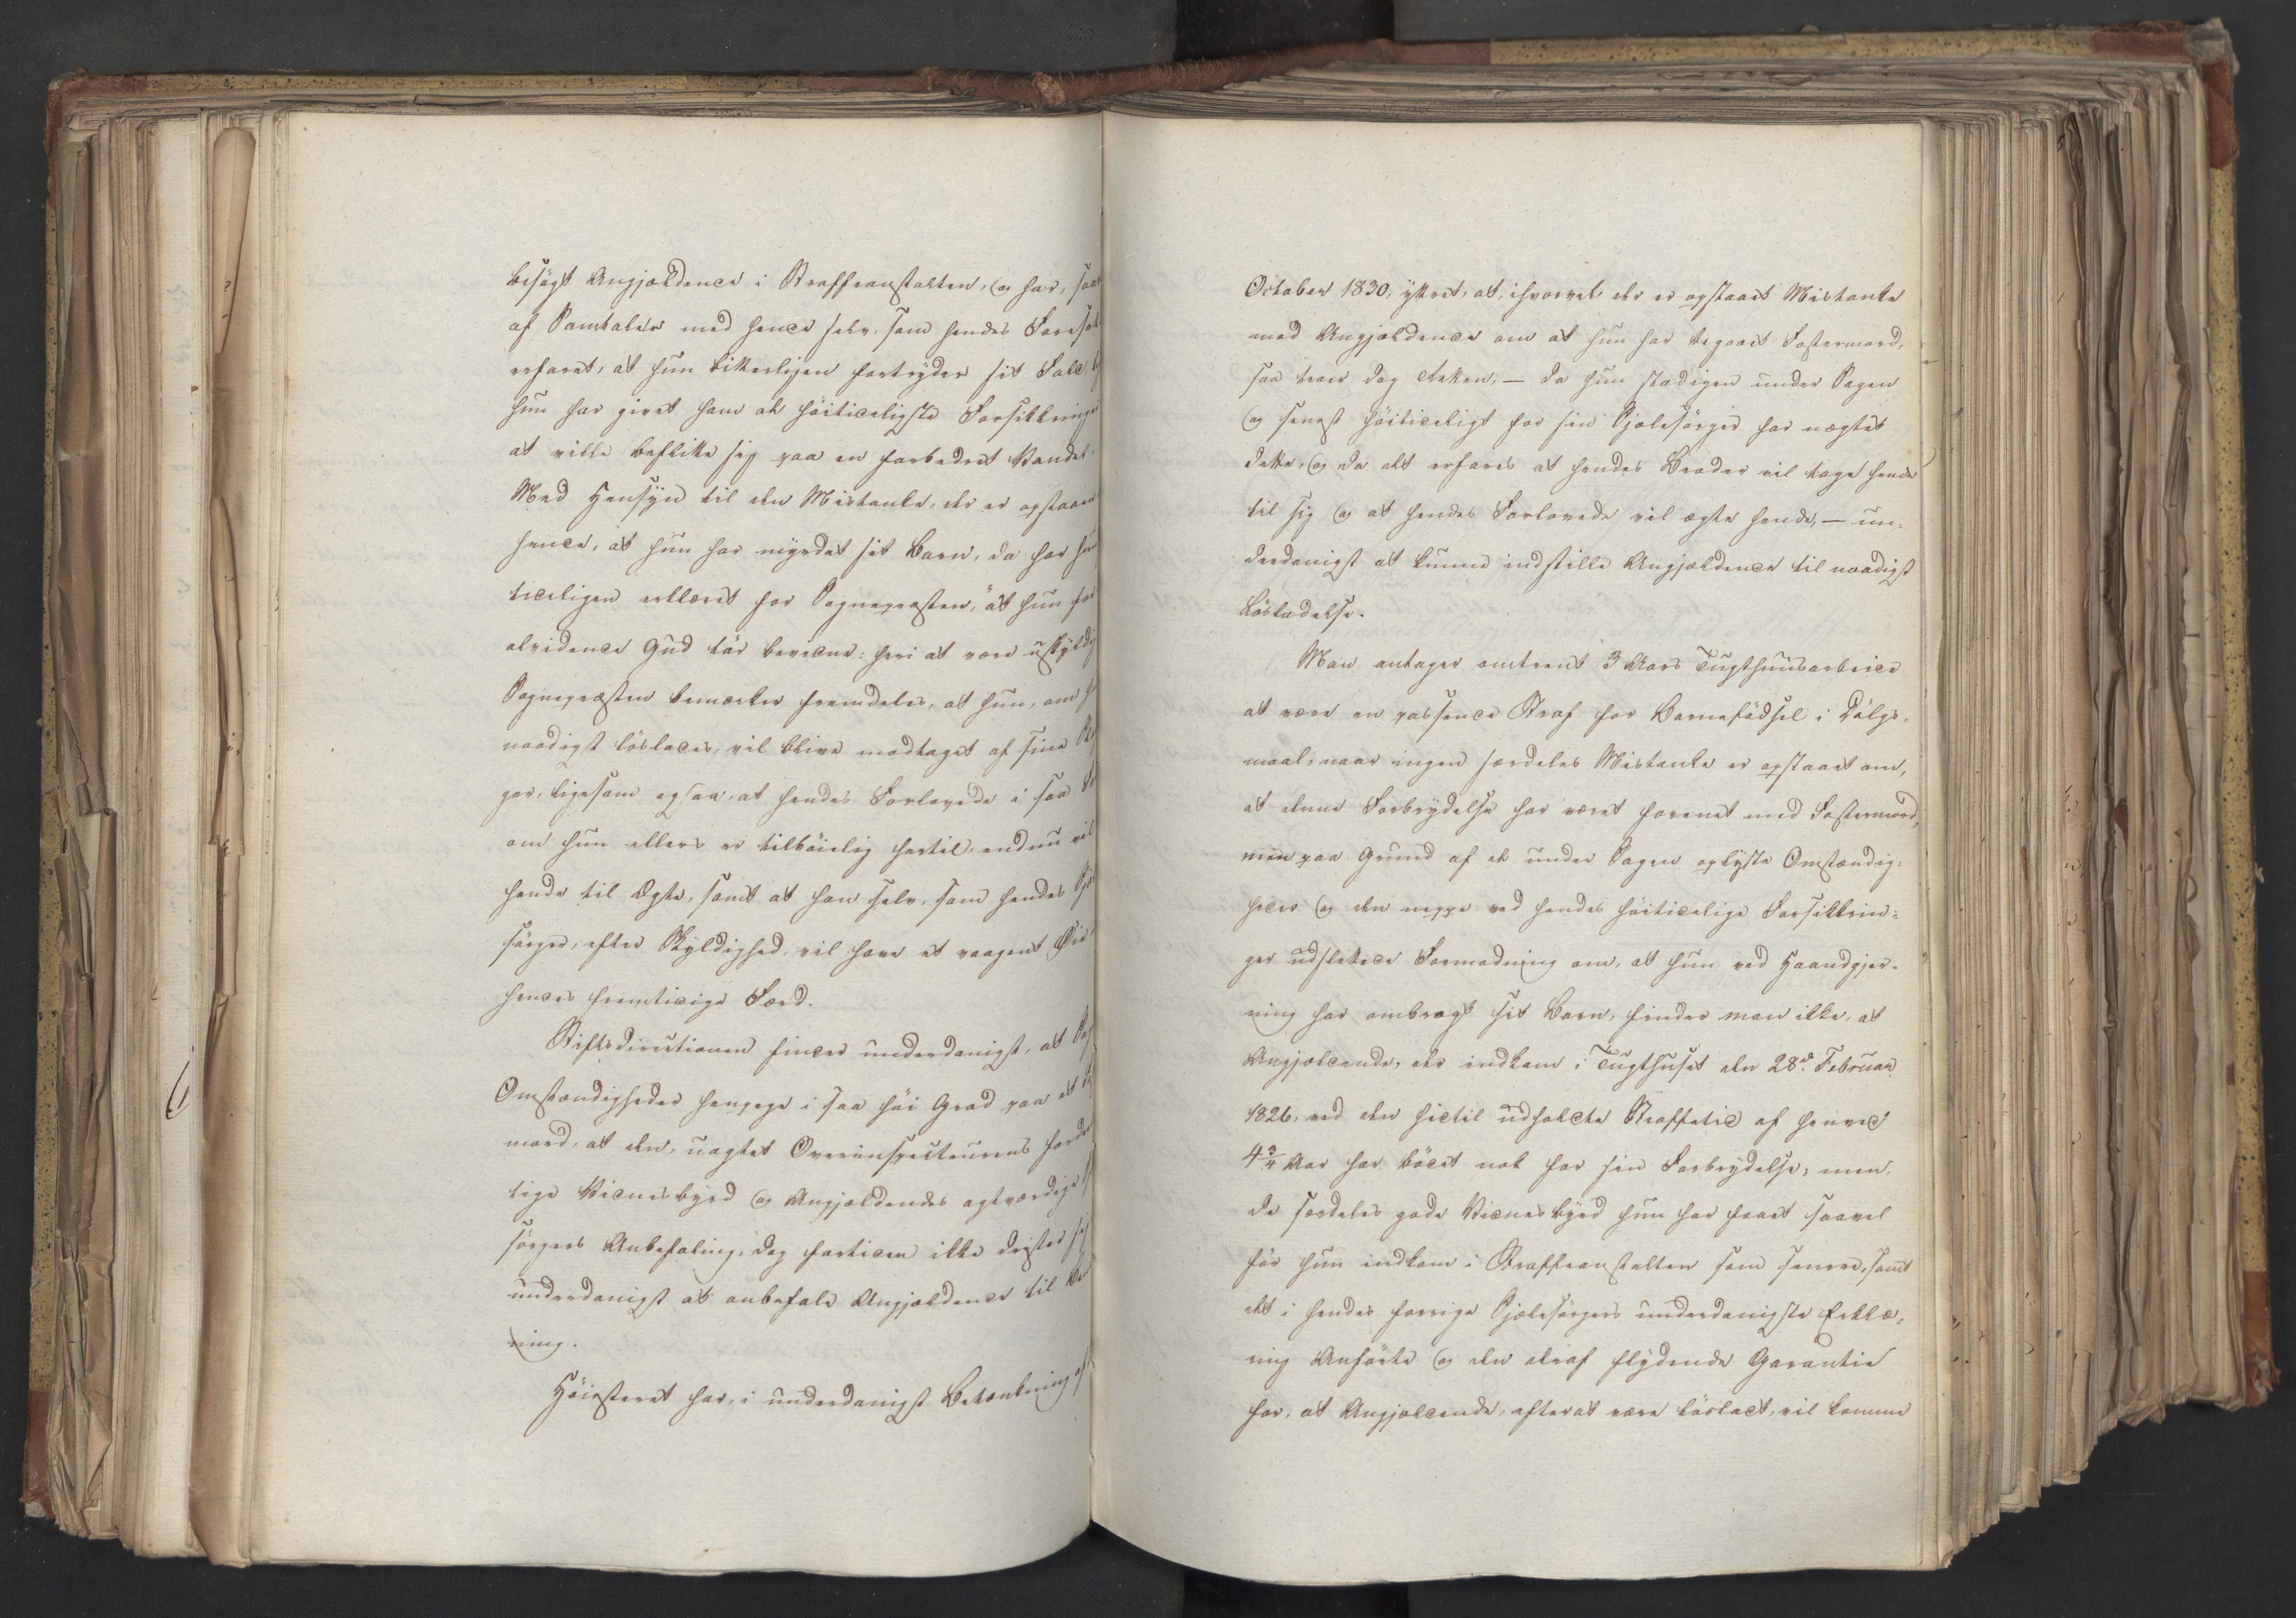 besøgt Angjældende i Straffeanstalten, og har, saa
af Samtaler med hende selv, som hendes Foresat
erfaret, at hun bitterligen fortryder sit Fald, og
hun har givet ham de høitideligste Forsikkringer
at ville beflitte sig paa en forbedret Vandel.
Med Hensyn til den Mistanke, der er opstaaet
hende, at hun har myrdet sit Barn, da har hun
tideligen erklæret for Sognepræsten, "at hun for
alvidende Gud tør bevidne: heri at være uskyldig
Sognepræsten bemærker fremdeles, at hun, om
naadigst løslades, vil blive modtaget af sine
ger, ligesom ogsaa, at hendes Forlovede i saa
om hun ellers er tilbøielig hertil, endnu vil
hende til Ægte, samt at han selv, som hendes Sjæ
sørger, efter Skyldighed, vil have et vaagent Øie
hendes fremtidige Færd.
Stiftsdirectionen finder underdanigst, at
Omstændigheder henpege i saa høi Grad paa et
mord, at den, uagtet Overinspecteurens
lige Vidnesbyrd og Angjældendes agtværdige
sørgers Anbefaling, dog fortiden ikke drister sig
underdanigst at anbefale Angjældende til
ning.
Høiesteret har, i underdanigst Betænkning af
October 1830, yttret, at, ihvorvel der er opstaaet Mistanke
mod Angjældende om at hun har begaaet Fostermord,
saa troer dog Retten, — da hun stadigen under Sagen
og senest høitideligt for sin Sjælesørger har nægtet
dette, og da det erfares at hendes Broder vil tage hende
til sig og at hendes Forlovede vil ægte hende, — un-
derdanigst at kunne indstille Angjældende til naadigst
Løsladelse.
Man antager omtrent 3 Aars Tugthuusarbeide
at være en passende Straf for Barnefødsel i Dølgs-
maal, naar ingen særdeles Mistanke er opstaaet om,
at denne Forbrydelse har været forenet med Fostermord,
men paa Grund af de under Sagen oplyste Omstændig-
heder og den neppe ved hendes høitidelige Forsikkrin-
ger udslettede Formodning om, at hun ved Haandgjer-
ning har ombragt sit Barn, finder man ikke, at
Angjældende, der indkom i Tugthuset den 28d. Februar
1826, ved den hidtil udholdte Straffetid af henved
4 3/4 Aar har bødet nok for sin Forbrydelse; men,
de særdeles gode Vidnesbyrd hun har faaet saavel
før hun indkom i Straffeanstalten som senere, samt
det i hendes forrige Sjælesørgers underdanigste Erklæ-
ring Anførte og den deraf flydende Garantie
for, at Angjældende, efterat være løsladt, vil komme